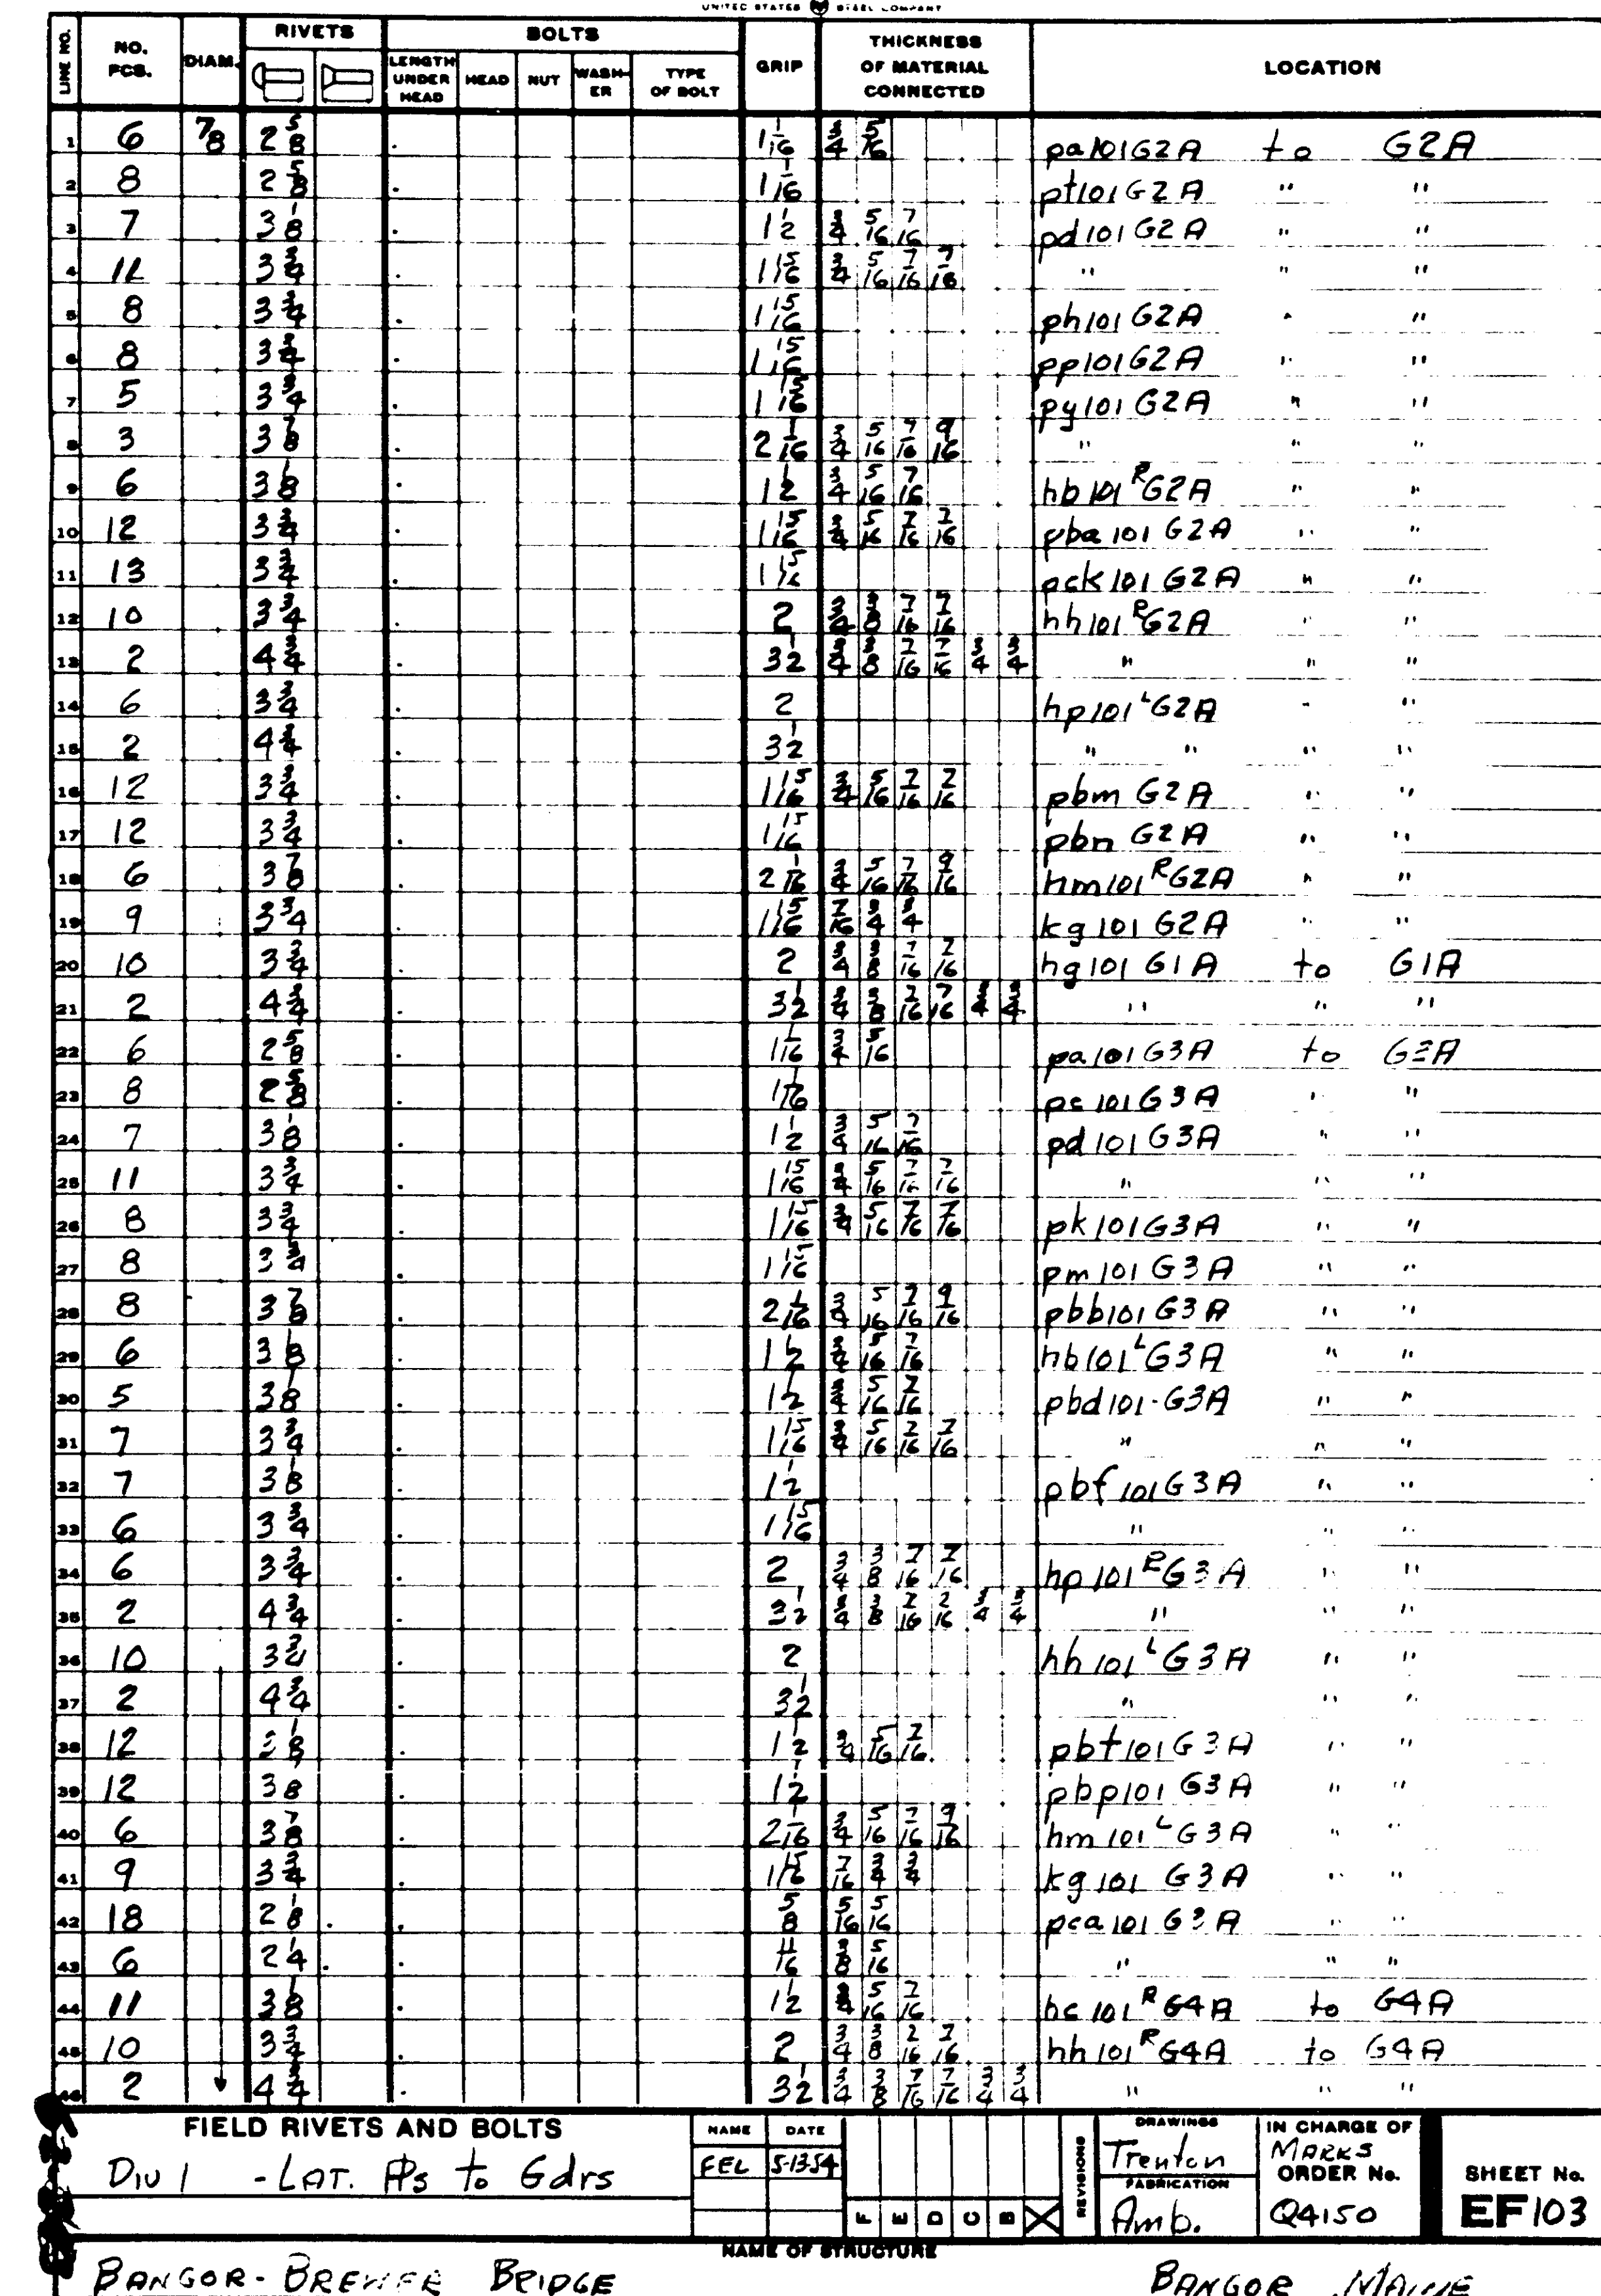 UNITED STATES STEEL COMPANY
LINE NO. NO. PCS. DIAM. RIVETS BOLTS LENGTH UNDER HEAD HEAD NUT WASH-ER TYPE OF BOLT GRIP THICKNESS OF MATERIAL CONNECTED LOCATION
1 6 7/8 2 5/8 1 1/16 3/4 5/16 pa101G2A to G2A
2 8 2 5/8 1 1/16 pt101G2A " "
3 7 3 1/8 1 1/2 3/4 5/16 7/16 pd101G2A " "
4 11 3 3/4 1 15/16 3/4 5/16 7/16 7/16 " " "
5 8 3 3/4 1 15/16 ph101G2A " "
6 8 3 3/4 1 15/16 pp101G2A " "
7 5 3 3/4 1 15/16 py101G2A " "
8 3 3 7/8 2 1/16 3/4 5/16 7/16 9/16 " " "
9 6 3 1/8 1 1/2 3/4 5/16 7/16 hb101RG2A " "
10 12 3 3/4 1 15/16 3/4 5/16 7/16 7/16 pba101G2A " "
11 13 3 3/4 1 15/16 pck101G2A " "
12 10 3 3/4 2 3/4 3/8 7/16 7/16 hh101RG2A " "
13 2 4 3/4 3 1/2 3/4 3/8 7/16 7/16 3/4 3/4 " " "
14 6 3 3/4 2 hp101LG2A " "
15 2 4 3/4 3 1/2 " " " "
16 12 3 3/4 1 15/16 3/4 5/16 7/16 7/16 pbm G2A " "
17 12 3 3/4 1 15/16 pbn G2A " "
18 6 3 7/8 2 1/16 3/4 5/16 7/16 9/16 hm101RG2A " "
19 9 3 3/4 1 15/16 7/16 3/4 3/4 kg101G2A " "
20 10 3 3/4 2 3/4 3/8 7/16 7/16 hg101G1A to G1A
21 2 4 3/4 3 1/2 3/4 3/8 7/16 7/16 3/4 3/4 " " "
22 6 2 5/8 1 1/16 3/4 5/16 pa101G3A to G3A
23 8 2 5/8 1 1/16 pc101G3A " "
24 7 3 1/8 1 1/2 3/4 5/16 7/16 pd101G3A " "
25 11 3 3/4 1 15/16 3/4 5/16 7/16 7/16 " " "
26 8 3 3/4 1 15/16 3/4 5/16 7/16 7/16 pk101G3A " "
27 8 3 3/4 1 15/16 pm101G3A " "
28 8 3 7/8 2 1/16 3/4 5/16 7/16 9/16 pbb101G3A " "
29 6 3 1/8 1 1/2 3/4 5/16 7/16 hb101LG3A " "
30 5 3 1/8 1 1/2 3/4 5/16 7/16 pbd101-G3A " "
31 7 3 3/4 1 15/16 3/4 5/16 7/16 7/16 " " "
32 7 3 1/8 1 1/2 pbf101G3A " "
33 6 3 3/4 1 15/16 " " "
34 6 3 3/4 2 3/4 3/8 7/16 7/16 hp101RG3A " "
35 2 4 3/4 3 1/2 3/4 3/8 7/16 7/16 3/4 3/4 " " "
36 10 3 3/4 2 hh101LG3A " "
37 2 4 3/4 3 1/2 " " "
38 12 3 1/8 1 1/2 3/4 5/16 7/16 pbt101G3A " "
39 12 3 1/8 1 1/2 pbp101G3A " "
40 6 3 7/8 2 1/16 3/4 5/16 7/16 9/16 hm101LG3A " "
41 9 3 3/4 1 15/16 7/16 3/4 3/4 kg101G3A " "
42 18 2 1/8 5/8 5/16 5/16 pca101G3A " "
43 6 2 1/4 11/16 3/8 5/16 " " "
44 11 3 1/8 1 1/2 3/4 5/16 7/16 hc101RG4A to G4A
45 10 3 3/4 2 3/4 3/8 7/16 7/16 hh101RG4A to G4A
46 2 4 3/4 3 1/2 3/4 3/8 7/16 7/16 3/4 3/4 " " "
FIELD RIVETS AND BOLTS
DIV 1 - LAT. PLs to Gdrs
NAME DATE
FEL 5-13-54
F E D C B
REVISIONS
DRAWINGS
Trenton
FABRICATION
Amb.
IN CHARGE OF
MARKS
ORDER No.
Q4150
SHEET No.
EF103
NAME OF STRUCTURE
BANGOR-BREWER BRIDGE BANGOR MAINE